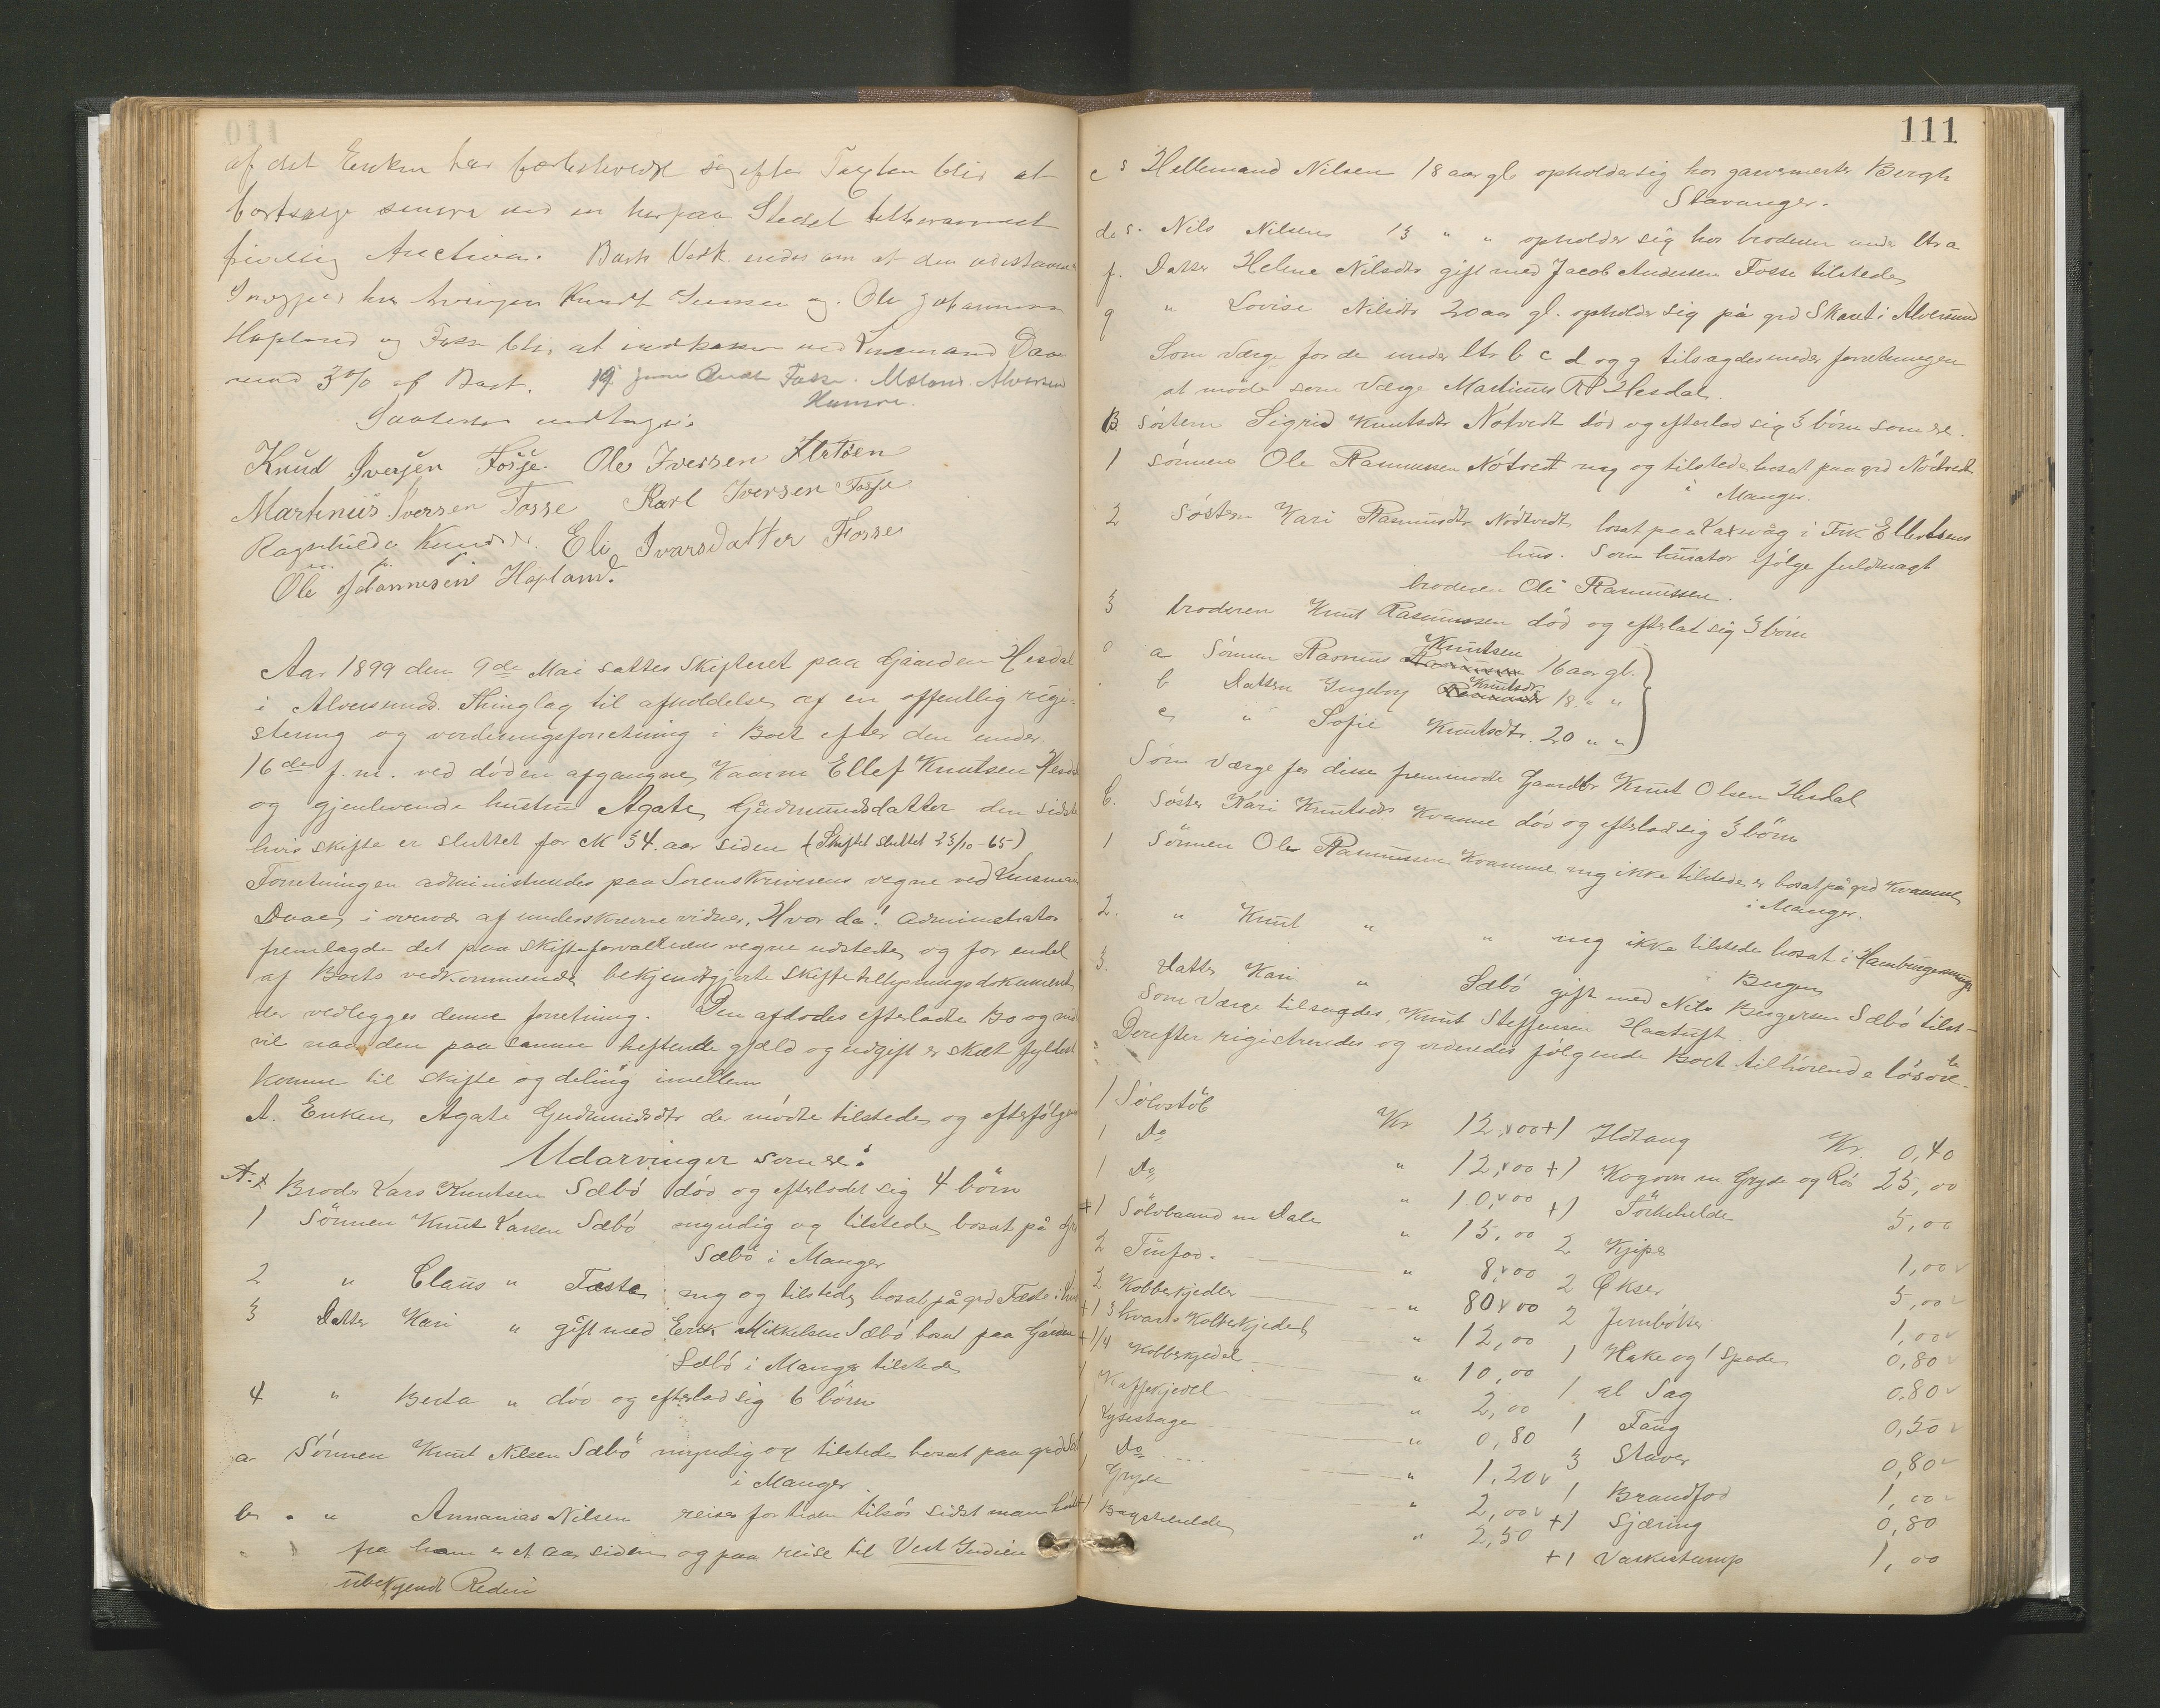 af det Enken har forbeholdt sig efter Taxten blir at
bortsælge senere ved en her paa Stedet
frivillig Auction. Boets Vedk. enedes om at den udestaaende
hos Arvingen Knudt Iversen og Ole Johannesen
Hopland og Fosse blir at indkassere ved Lensmand Daae
mod 3% af Boet. 19 Juni Fosse. Alversund
Hamre.
Saaledes vedtages:
Knud Iversen Fosse. Ole Iversen
Martinus Iversen Fosse Karl Iversen Fosse
Ragnhilda Knudsd. Eli Ivarsdatter Fosse
m. p. P.
Ole Johannesen Hopland.
Aar 1899 den 9de Mai sattes Skifteret paa Gaarden Hesdal
i Alversunds Thinglag til afholdelse af en offentlig regi-
stering og vorderingsforretning i Boet efter den under
16de f. m. ved døden afgangne Kaarm Ellef Knutsen Hesdal
og gjenlevende hustru Agate Gudmundsdatter den sidste
hvis skifte er sluttet for M 34 aar siden (Skiftet sluttet 23/10-65)
Forretningen administreredes paa Sorenskriverens vegne ved Lensmand
Daae i overvær af underskrevne vidner. Hvor da! Administrator
fremlagde det paa Skifteforvalterens vegne udstedte og for endel
af Boets vedkommende bekjendtgjorte Skiftetillysningsdokument
der vedlegges denne forretning. Den afdødes efterladte Bo og
vil naar den paa samme heftende gjæld og udgift er skeet fyldest
komme til skifte og deling imellem
A. Enken Agate Gudmundsdtr der mødte tilstede og efterfølgende
Udarvinger som se:
A. Broder Lars Knutsen Sæbø død og efterladt sig 4 børn
1 Sønnen Knut Larsen Sæbø myndig og tilstede bosat på Grd
Sæbø i Manger
2 " Claus " Fæste myg og tilstede bosat på grd Fæste i
3 Datter Kari " gift med Erik Mikkelsen Sæbø bosat paa Gården
Sæbø i Manger tilstede
4 " Berta " død og efterlad sig 6 børn
a Sønnen Knut Nilsen Sæbø myndig og tilstede bosat paa grd
i Manger
b " " Annanias Nilsen reiser for tiden tilsøs sidst man hørte
fra ham er et aar siden og paa reise til Vest Indien
ubekjendt Rederi
111
c s Hellemand Nilsen 18 aar gl opholder sig hos garvemester Bergh
Stavanger.
d s. Nils Nilsen 13 " " opholder sig hos broderen under ltr a
f. Datter Helene Nilsdtr gift med Jacob Andersen Fosse tilstede
g " Lovise Nilsdtr 20 aar gl. opholder sig på grd Skaret i Alversund
Som Værge for de under ltr b c d og g tilsagdes under forretningen
at møde som Værge Martinus R Hesdal.
B Søsteren Sigrid Knutsdtr Nøtvedt død og efterlod sig 3 børn som se.
1 Sønnen Ole Rasmussen Nøtvedt myg og tilstede bosat paa grd Nøtvedt
i Manger.
2 Søsteren Kari Rasmusdtr Nødtvedt bosat paa Laxevåg i Frk Ellertsens
hus. Som kurator ifølge fuldmagt
broderen Ole Rasmussen.
3 broderen Knut Rasmussen død og efterlat sig 3 børn
a Sønnen Rasmus Knutsen 16 aar gl.
b Datteren Ingeborg Knutsdtr 18 " "
c " Sofie Knutsdtr. 20 " "
Som Værge for disse fremmødte Gaardbr Knut Olsen Hesdal
C. Søster Kari Knutsdtr Kvamme død og efterlod sig 3 børn
1 Sønnen Ole Rasmussen Kvamme myg ikke tilstede er bosat på grd Kvamme
i Manger.
2. " Knut " " myg ikke tilstede bosat i
i Bergen
3. Datter Kari " Sæbø gift med Nils Birgersen Sæbø tilst-
Som Værge tilsagdes Knut Steffensen Haatuft
Derefter rigistreredes og vorderedes følgende Boet tilhørende løsøre.
1 Sølvstøb Kr 12,00 +1 Ildtang Kr. 0,40
1 Do " 12,00 +1 Kogovn m Gryde og Rør 25,00
1 Do " 10,00 +1 5,00
+1 Sølvbaand m Daler " 15,00 2 Kjiper 1,00
2 Tinfad. " 8,00 2 Økser 5,00
2 Kobberkjedler " 80,00 2 Jernbøtter 1,00
+1 3 kvarts Kobberkjedel " 12,00 1 Hake og 1 Spade 0,80
+1/4 Kobberkjedel " 10,00 1 al Sag 0,80
1 Kaffekjedel " 2,00 1 Tang 0,50
1 Lysestage " 0,80 3 Staver 0,80
1 Do " 1,20 1 Brandfod 1,00
1 Gryde " 2,00 +1 Sjæring 0,80
+1 Bagstehelde " 2,50 +1 Vaskestamp 1,00